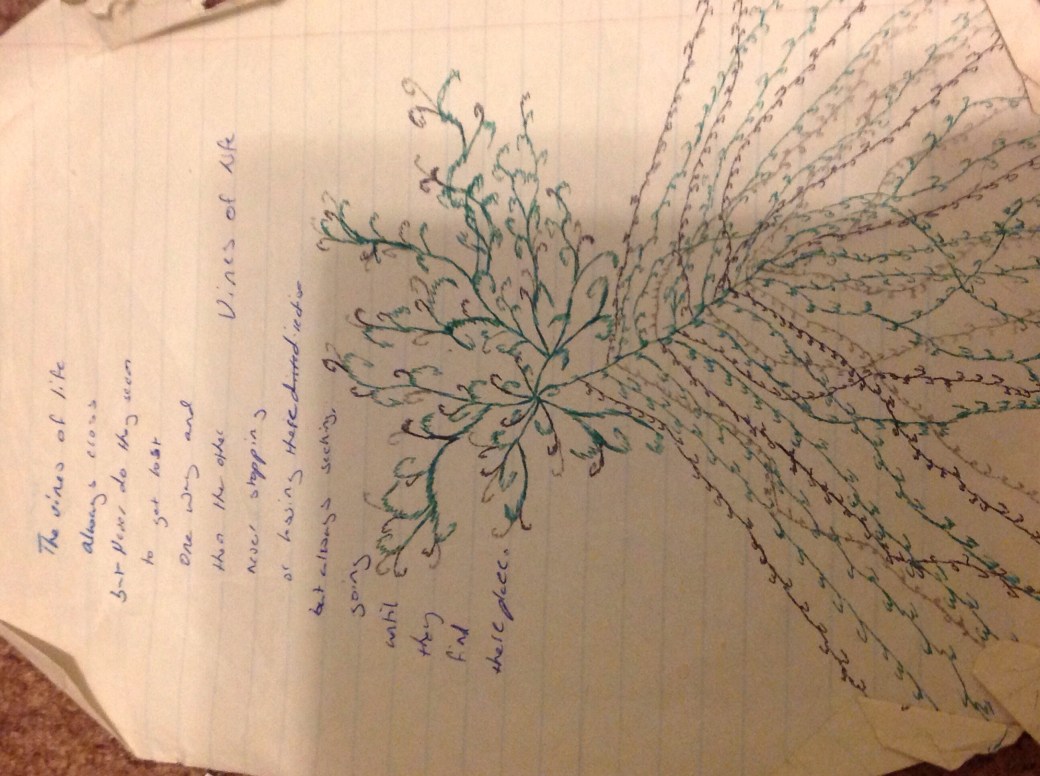 Vines of life
The vines of life
always cross
but never do they seem
to get lost
one way and
then the other
never stopping
or having there direction
but always seeking.
going
until
they
find
there place.